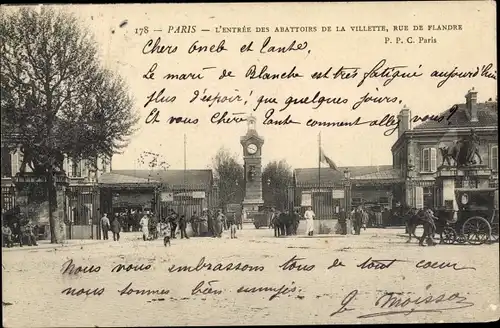 178 - PARIS - L'ENTRÉE DES ABATTOIRS DE LA VILLETTE, RUE DE FLANDRE
P. P. C. Paris
Chers Oncle et Tante,
Le mari de Blanche est très fatigué aujourd'hui
plus d'espoir, que quelques jours.
Et vous cher Tante comment allez vous?
Nous vous embrassons tous de tout cœur
nous sommes bien ennuyés.
Moisson